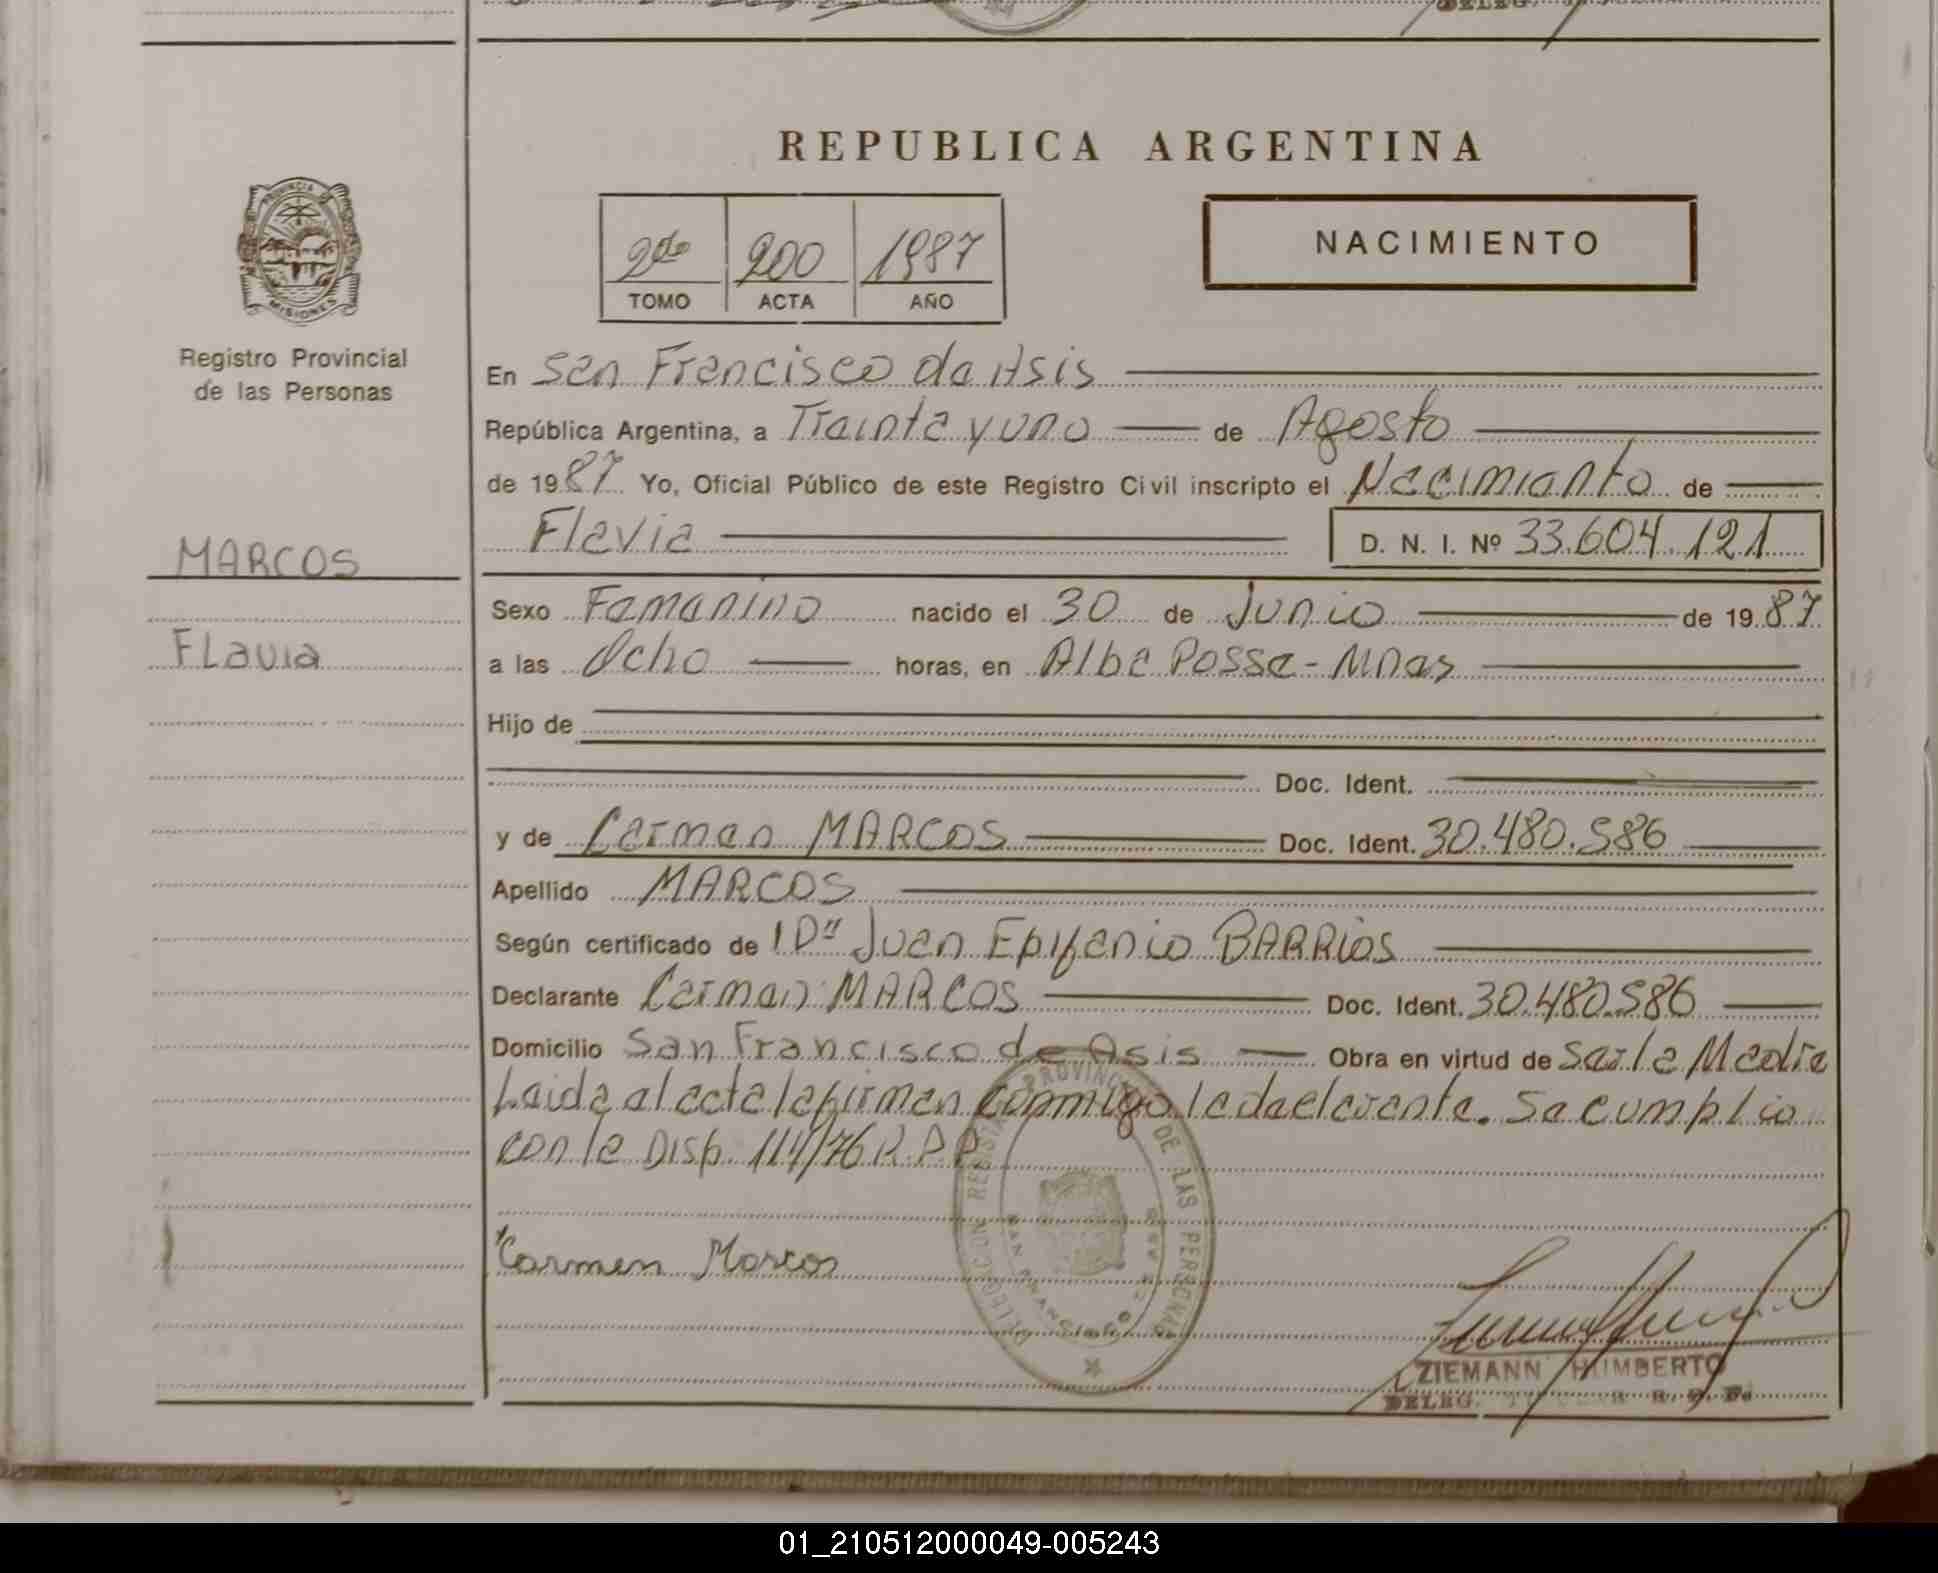 REPUBLICA ARGENTINA
PROVINCIA DE MISIONES
Registro Provincial
de las Personas
2do 200 1987
TOMO ACTA AÑO
NACIMIENTO
En San Francisco de Asis
República Argentina, a Treinta y uno de Agosto
de 1987 Yo, Oficial Público de este Registro Civil inscripto el Nacimiento de
Flavia D. N. I. Nº 33.604.121
MARCOS
Flavia
Sexo Femenino nacido el 30 de Junio de 1987
a las Ocho horas, en Alba Posse - Mnes
Hijo de
Doc. Ident.
y de Carmen MARCOS Doc. Ident. 30.480.586
Apellido MARCOS
Según certificado de Juan Epifanio BARRIOS
Declarante Carmen MARCOS Doc. Ident. 30.480.586
Domicilio San Francisco de Asis Obra en virtud de ser la Madre
Leida el acta la firman conmigo la declarante. Se cumplio
con la Disp. 114/76 R.P.P.
Carmen Marcos
REGISTRO PROVINCIAL DE LAS PERSONAS
SAN FRANCISCO
ZIEMANN HUMBERTO
DELEG. R. P. P.
01_210512000049-005243